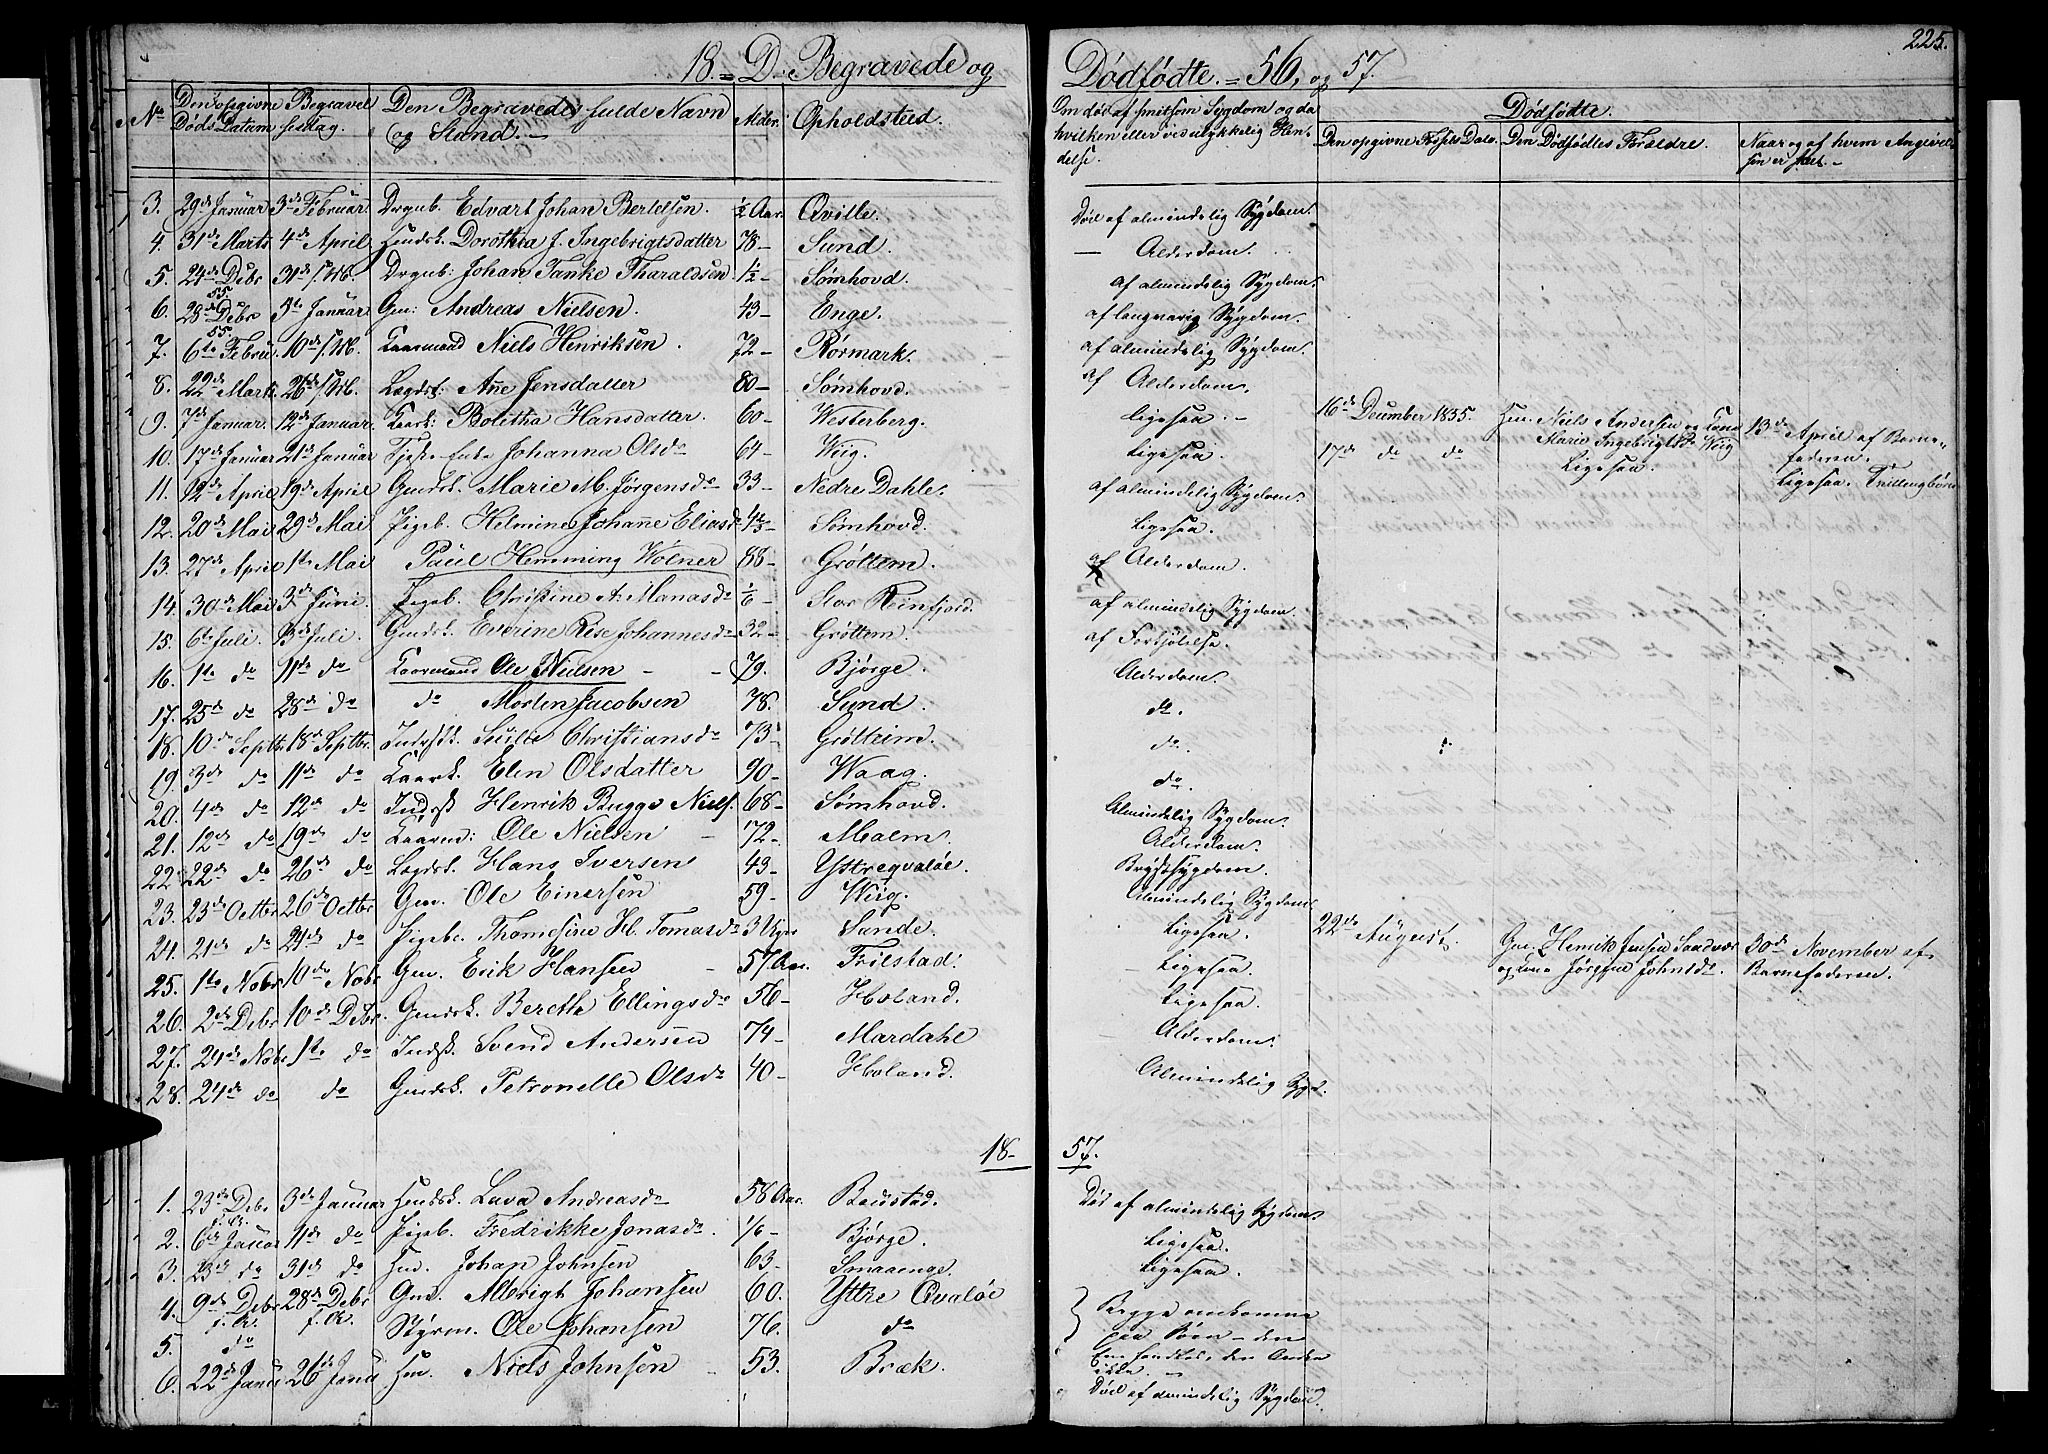 225.
18. = D. Begravede og Dødfødte. = 56, og 57.
No Den opgivne Døds Datum Begravelsesdag. Den Begravedes fulde Navn og Stand. Alder. Opholdsted. Om død af smitsom Sygdom og da hvilken eller ved ulykkelig Hændelse.
Dødfødte.
Den opgivne Fødsels Dato. Den Dødfødtes Forældre. Naar og af hvem Angivelsen er skeet.
3. 29de Januar 3de Februar. Drgnb. Edvart Johan Bertelsen. ½ Aar. Qville. Død af almindelig Sygdom.
4. 31de Marts 4de April Huusk. Dorothea J. Ingebrigtsdatter 78 – Sund. – Alderdom.
5. 24de Debr 55. 31de s. M. Drgnb: Johan Tanke Tharaldsen. 1½ – Sømhovd. af almindelig Sygdom.
6. 28de Debr 55. 5te Januar Gm: Andreas Nielsen. 43 – Enge. af langvarig Sygdom.
7. 6te Febru. 10de s. M. Kaarmand Niels Henriksen. 72 – Rørmark. af almindelig Sygdom.
8. 22de Marts 26de s. M. Lægdsl: Ane Jensdatter 80 – Sømhovd. af Alderdom.
9. 7de Januar. 12de Januar. Kaark: Bolitha Hansdatter. 60 – Westerberg. Ligesaa. – 16de December 1855. Hm. Niels Andersen og Kone Marie Ingebrigtsdr Wiig 13de April af Barnefaderen.
10. 17de Januar 21de Januar Tjest. Enke Johanna Olsdr 64 – Wiig. Ligesaa. 17de do do Ligesaa. Ligesaa. Tvillingbørn
11. 12te April 19de April Gmdsk. Marie M. Jørgensdr 33 – Nedre Dahle. af almindelig Sygdom.
12. 20de Mai 29de Mai Pigeb. Helmine Johanne Eliasdr Sømhovd. Ligesaa.
13. 27de April 1ste Mai Paul Hemming Wolner 88 – Grøttem. af Alderdom.
14. 30de Mai 3de Juni. Pigeb. Christine A. Monasdr ⅙ – Stor Reinfjord. af almindelig Sygdom
15. 6te Juli. 13de Juli. Gmdsk. Everine Rise Johannesdr 32 – Grøttem. af Forkjølelse.
16. 1te do 11te do Kaarmand Ole Nielsen – – 79. Bjørge. Alderdom.
17. 25de do 28de do do Morten Jacobsen 78. Sund. do.
18. 10de Septb. 18de Septbr. Inderstk. Sesilie Christiansdr 73 – Grøtteim. do.
19. 3de do 11de do Kaark. Elen Olsdatter 90 – Waag. do.
20. 4de do 12te do Inderst Henrik Bugge Niels. 68 – Sømhovd. Almindelig Sygdom.
21. 12te do 19de do Kaarmd: Ole Nielsen – 72 – Malm. Alderdom.
22. 22de do 26de do Lægdsl. Hans Iversen 49 – Yttreqvaløe. Brystsygdom.
23. 23de Octbr 26de Octbr Gm. Ole Einersen 59 – Wiig. Almindelig Sygdom.
24. 21de do 29de do Pigeb. Thomesine H. Tomasdr 3 Uger Sunde. Ligesaa. 22de August. Gm. Henrik Jensen Sandvær og Kone Jørgine Johnsdr. 30de November af Barnefaderen.
25. 1te Nobr 10de Nobr Gm. Erik Hansen – 57 Aar. Frilstad. – Ligesaa.
26. 2de Debr 10de Debr. Gmdsk. Beretha Ellingsdr 56 – Holand. Ligesaa.
27. 24de Nobr 1te do Indst. Svend Andersen 74 – Mardahl Alderdom.
28. 24de do do Gmdsk. Petronelle Olsdr 40 – Holand. Almindelig Sygd.
18 – 57.
1. 23de Debr f. A. 3de Januar Huusk. Lava Andreasdr 58 Aar. Baustad. Død af almindelig Sygdom.
2. 6te Januar 11de do Pigeb. Fredrikke Jonasdr. ⅙ – Bjørge. Ligesaa.
3. 23de do 31de do Hm. Johan Johnsen 63 – Smaaenge. Ligesaa.
4. 9de Debr f. A. 28de Debr f. A. Gm. Albrigt Johansen 60. Yttre Qvaløe } Begge omkomne paa Søen – den Ene fundet, den Anden ikke. –
5. do Styrm. Ole Johansen 76. do
6. 22de Janu 26de Janu Hm. Niels Johnsen – 53. Bræk. Død af almindelig Sygdom.